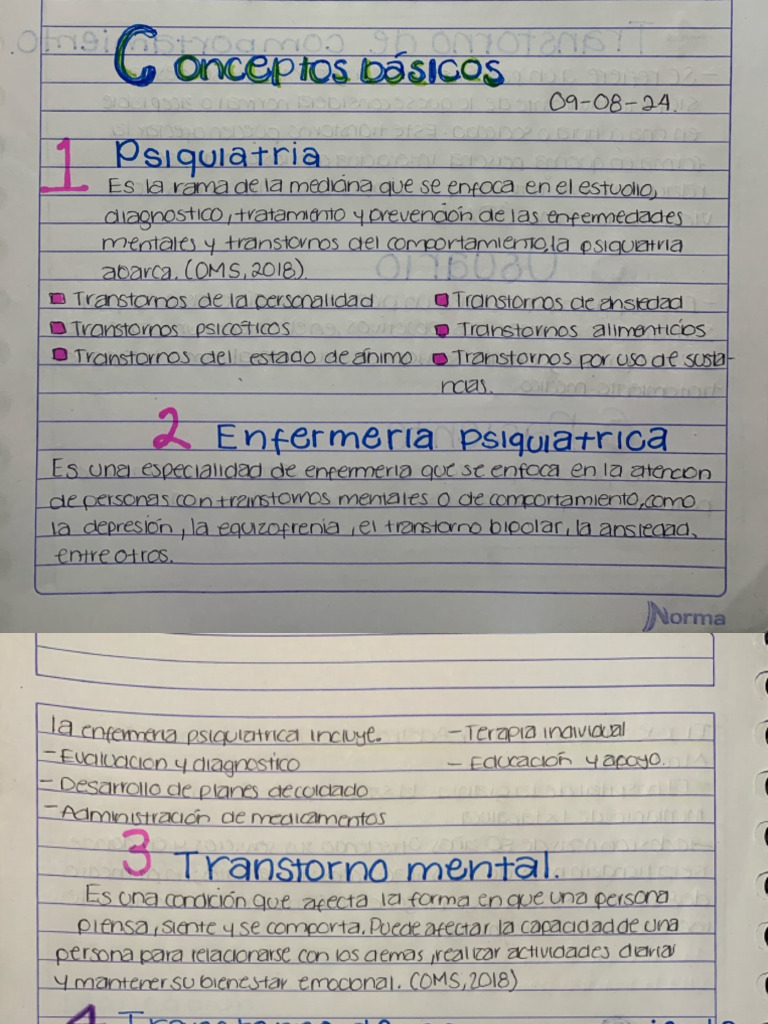 Conceptos básicos
09-08-24.
1 Psiquiatria
Es la rama de la medicina que se enfoca en el estudio,
diagnostico, tratamiento y prevención de las enfermedades
mentales y transtornos del comportamiento, la psiquiatria
abarca. (OMS, 2018).
Transtornos de la personalidad
Transtornos psicoticos
Transtornos del estado de ánimo
Transtornos de ansiedad
Transtornos alimenticios
Transtornos por uso de susta-
ncias.
2 Enfermeria psiquiatrica
Es una especialidad de enfermeria que se enfoca en la atencion
de personas con transtornos mentales o de comportamiento, como
la depresión, la equizofrenia, el transtorno bipolar, la ansiedad,
entre otros.
Norma
la enfermeria psiquiatrica incluye.
- Evaluacion y diagnostico
- Desarrollo de planes de cuidado
- Administración de medicamentos
- Terapia individual
- Educación y apoyo.
3 Transtorno mental.
Es una condición que afecta la forma en que una persona
piensa, siente y se comporta. Puede afectar la capacidad de una
persona para relacionarse con los demas, realizar actividades diarias
y mantener su bienestar emocional. (OMS, 2018)